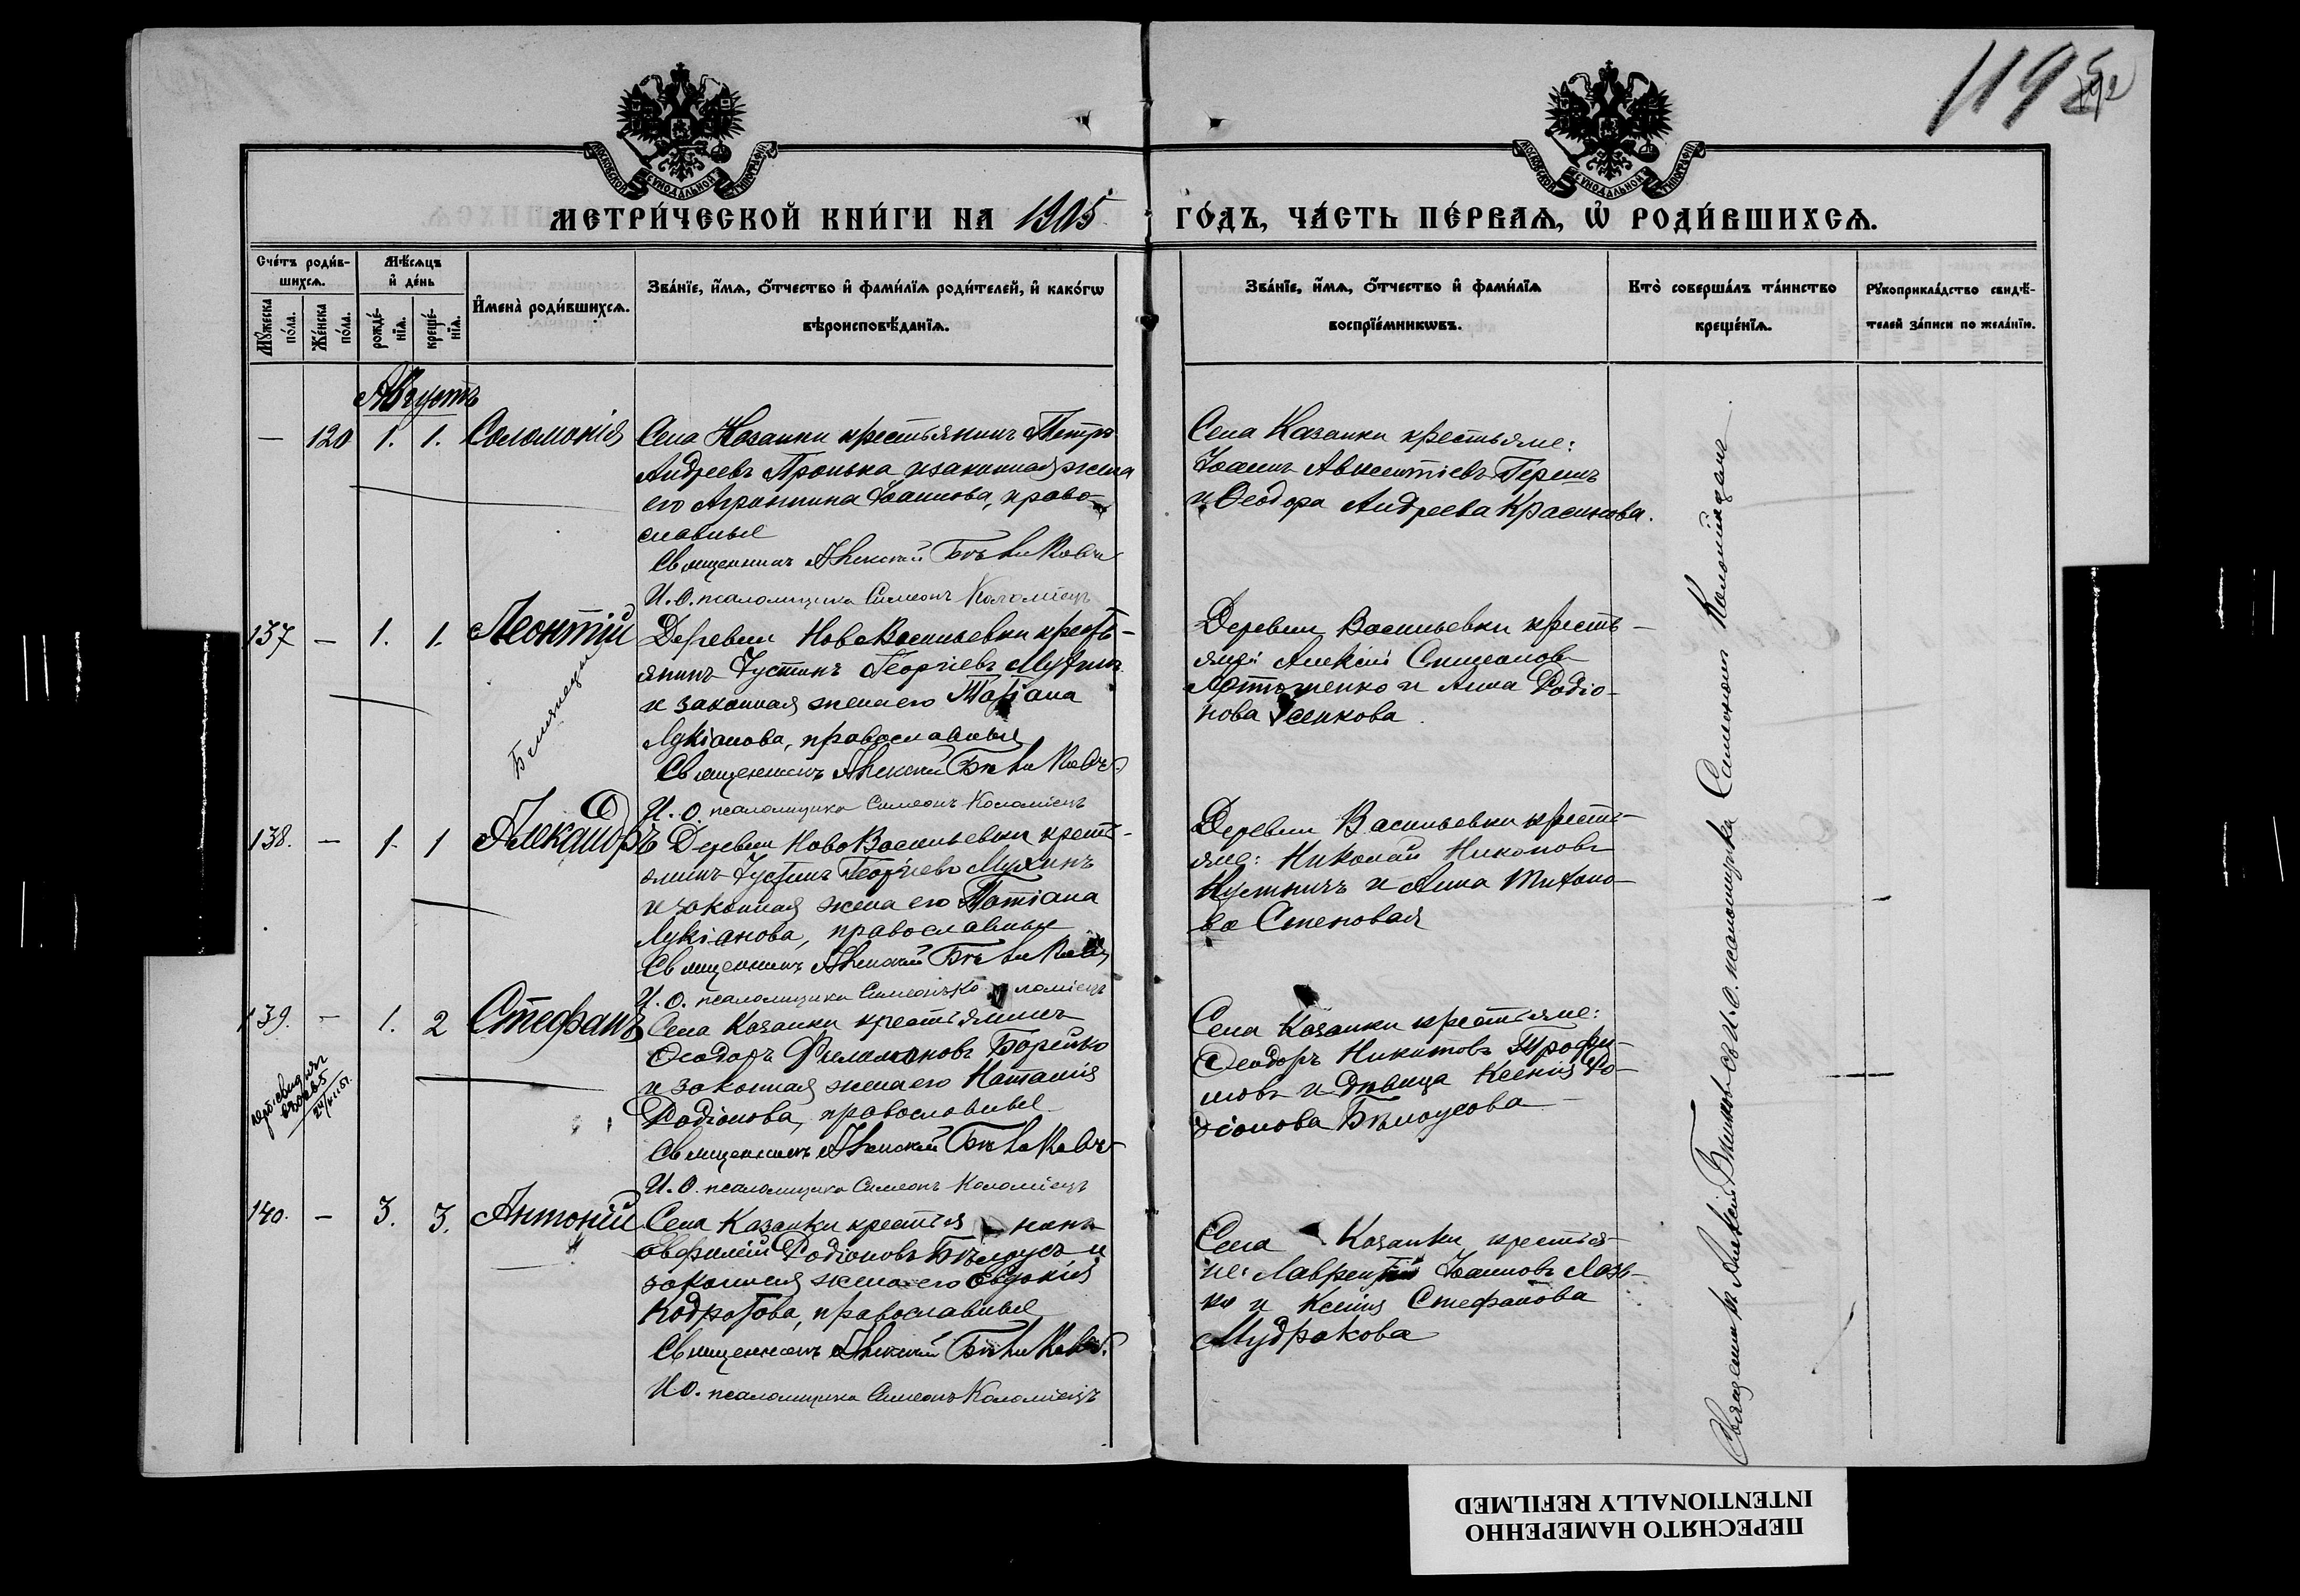 119
МОСКОВСКОЙ СѴНОДАЛЬНОЙ ТИПОГРАФІИ
МОСКОВСКОЙ СѴНОДАЛЬНОЙ ТИПОГРАФІИ
МЕТРИ́ЧЕСКОЙ КНИ́ГИ НА 1905 ГО́ДЪ, ЧА́СТЬ ПЕ́РВАѦ, Ѡ҆ РОДИ́ВШИХСѦ.
Счетъ роди́в-
шихсѧ.
Мꙋ́жеска по́ла.
Же́нска по́ла.
Мѣ́сѧцъ
и҆ де́нь
рожде́-
нїѧ.
креще́-
нїѧ.
И҆мена̀ роди́вшихсѧ.
Зва́нїе, и҆́мѧ, ѻ҆́тчество и҆ фами́лїѧ роди́телей, и҆ како́гѡ
вѣроисповѣ́данїѧ.
Зва́нїе, и҆́мѧ, ѻ҆́тчество и҆ фами́лїѧ
воспрїе́мникѡвъ.
Кто̀ соверша́лъ та́инство
креще́нїѧ.
Рꙋкоприкла́дство свидѣ́-
телей за́писи по жела́нїю.
Августъ
— 120 1. 1. Соломонія
Села Казанки крестьянинъ Петръ
Андреевъ Пронька и законная жена
его Агриппина Іоаннова, право-
славные
Священникъ Алексій Бѣликовъ
И. О. псаломщика Симеонъ Коломіецъ
Села Казанки крестьяне:
Іоаннъ Авксентіевъ
и Ѳеодора Андреева Красикова.
137 — 1. 1. Леонтій
Близнецы
Деревни НовоВасильевки кресть-
янинъ Іустинъ Георгіевъ Мухинъ
и законная жена его Татіана
Лукіанова, православные
Священникъ Алексій Бѣликовъ
И. О. псаломщика Симеонъ Коломіецъ
Деревни Васильевки кресть-
яне: Алексій
и Анна Родіо-
нова
138. — 1. 1 Александръ
Деревни НовоВасильевки кресть-
янинъ Іустинъ Георгіевъ Мухинъ
и законная жена его Татіана
Лукіанова, православные
Священникъ Алексій Бѣликовъ
И. О. псаломщика Симеонъ Коломіецъ
Деревни Васильевки кресть-
яне: Николай Никоновъ
и Анна Тихоно-
ва Степовая
139. — 1. 2 Стефанъ
Села Казанки крестьянинъ
Ѳеодоръ Филимоновъ Борейко
и законная жена его Наталія
Родіонова, православные
Священникъ Алексій Бѣликовъ
И. О. псаломщика Симеонъ Коломіецъ
Села Казанки крестьяне:
Ѳеодоръ Никитовъ Трофи-
мовъ и дѣвица Ксенія Ро-
діонова Бѣлоусова
140. — 3. 3. Антоній
Села Казанки крестьянинъ
Евфимій Родіоновъ Бѣлоусъ и
законная жена его Евдокія
Кодратова, православные
Священникъ Алексій Бѣликовъ
И О. псаломщика Симеонъ Коломіецъ
Села Казанки крестья-
не: Лаврентій Іоанновъ Лазь-
ко и Ксенія Стефанова
Мудракова
Священникъ Алексій Бѣликовъ съ И. О. псаломщика Симеономъ Коломійцемъ
ПЕРЕСНЯТО НАМЕРЕННО
INTENTIONALLY REFILMED